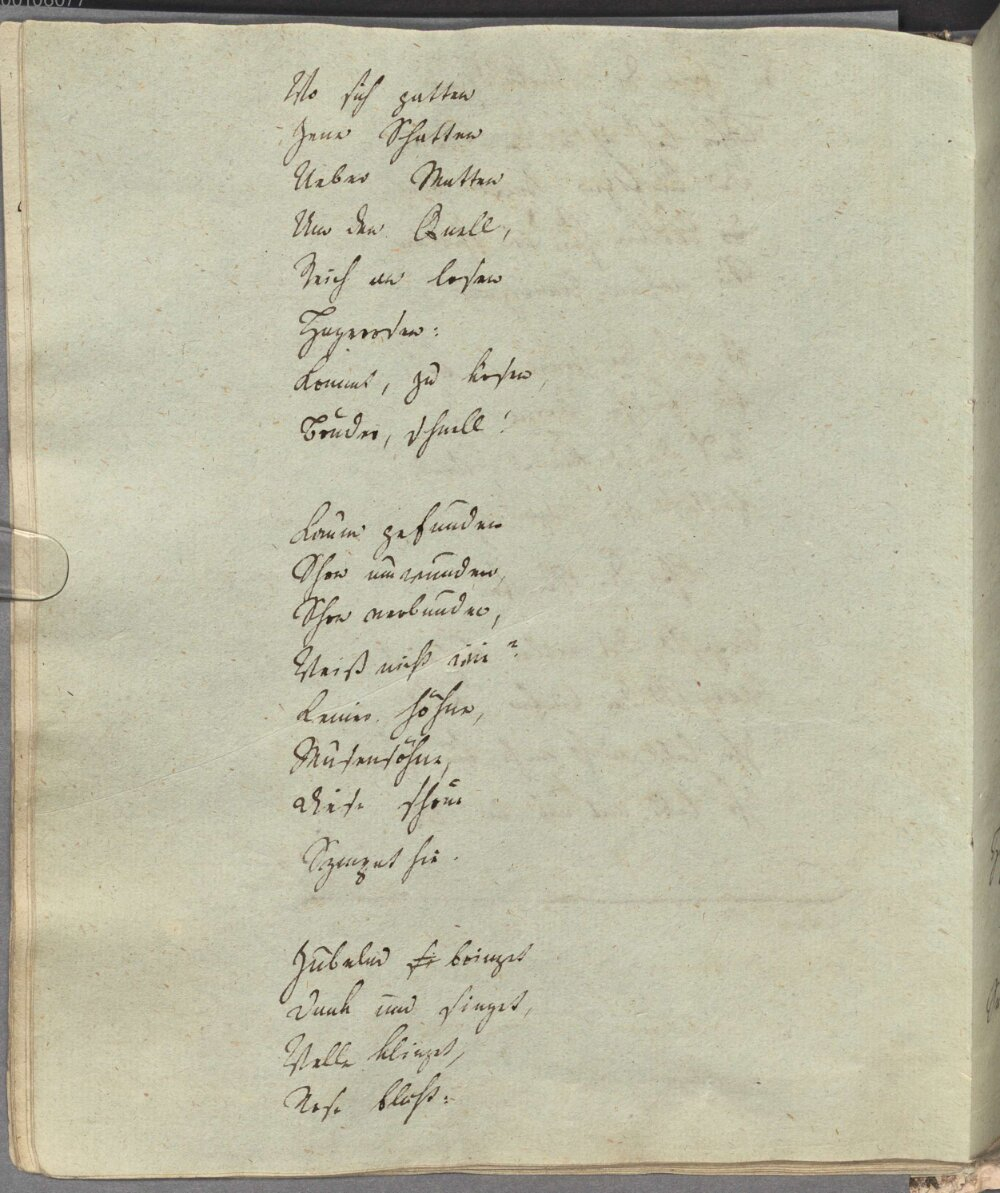 Wo sich gatten
Jene Schatten
Ueber Matten
Um den Quell,
Reich an losen
Hagerosen:
Kommt, zu kosen,
Brüder, schnell!
Kaum gefunden
Schon umwunden,
Schon verbunden,
Weiß nicht wie?
Keiner höhne,
Musensöhne,
Diese schöne
Sympathie.
Jubelnd bringet
Dank und singet,
Welle klinget,
Rose bläht: